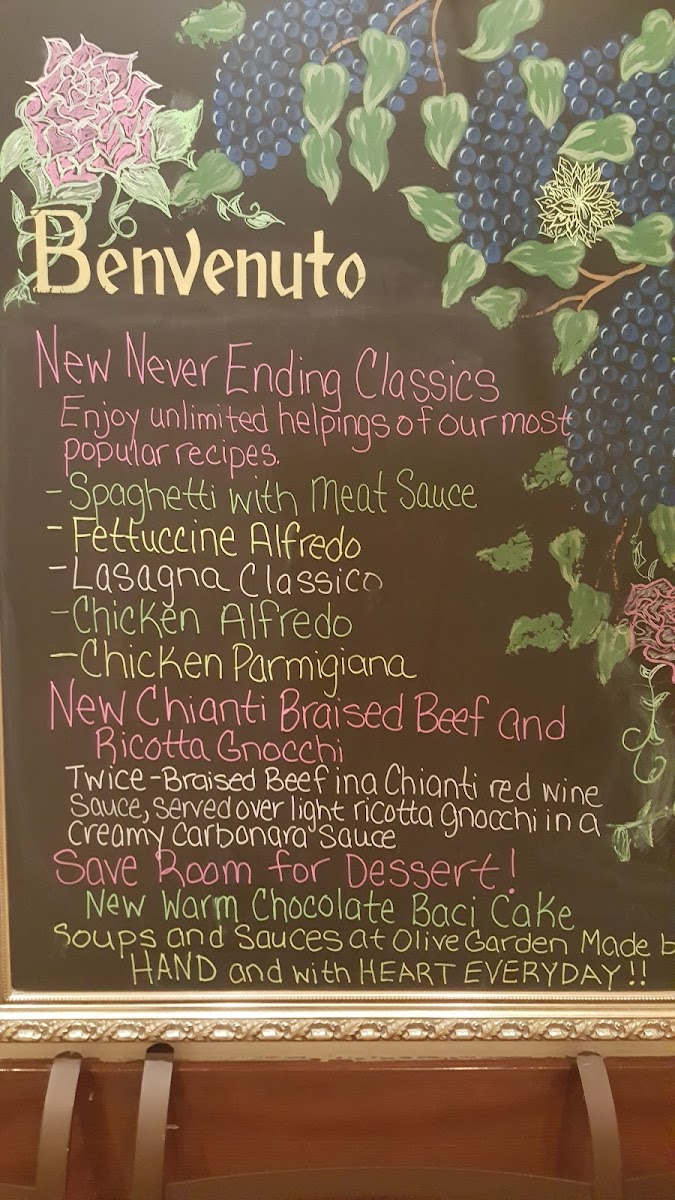 Benvenuto
New Never Ending Classics
Enjoy unlimited helpings of our most
popular recipes.
- Spaghetti with Meat Sauce
- Fettuccine Alfredo
- Lasagna Classico
- Chicken Alfredo
- Chicken Parmigiana
New Chianti Braised Beef and
Ricotta Gnocchi
Twice-Braised Beef in a Chianti red wine
Sauce, served over light ricotta gnocchi in a
creamy Carbonara Sauce
Save Room for Dessert!
New Warm Chocolate Baci Cake
Soups and Sauces at Olive Garden Made b
HAND and with HEART EVERYDAY!!